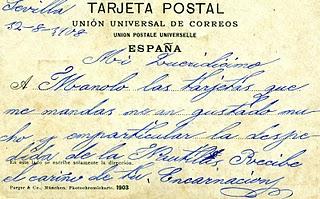 Sevilla
TARJETA POSTAL
UNIÓN UNIVERSAL DE CORREOS
UNION POSTALE UNIVERSELLE
ESPAÑA
Mi Queridisimo
A Manolo las tarjetas que
me mandas me an gustado mu
cho y emparticular la despe
dida de la Recibe
En este lado se escribe solamente la dirección.
el cariño de tu Encarnacion
Purger & Co., München, Photochromiekarte. 1903